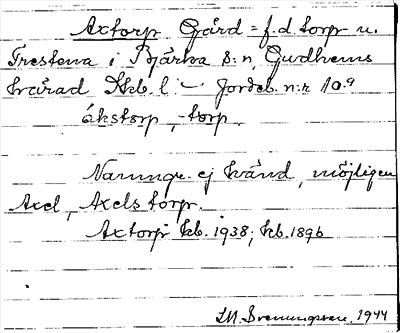 Axtorp Gård = f. d. torp u.
Trestena i Bjärka s:n, Gudhems
härad Skb. l. — Jordeb. n:r 10.9
ákstorp, -torp.
Namngr. ej känd, möjligen
Axel, Axelstorp.
Axtorp kb. 1938; hb. 1896
1944